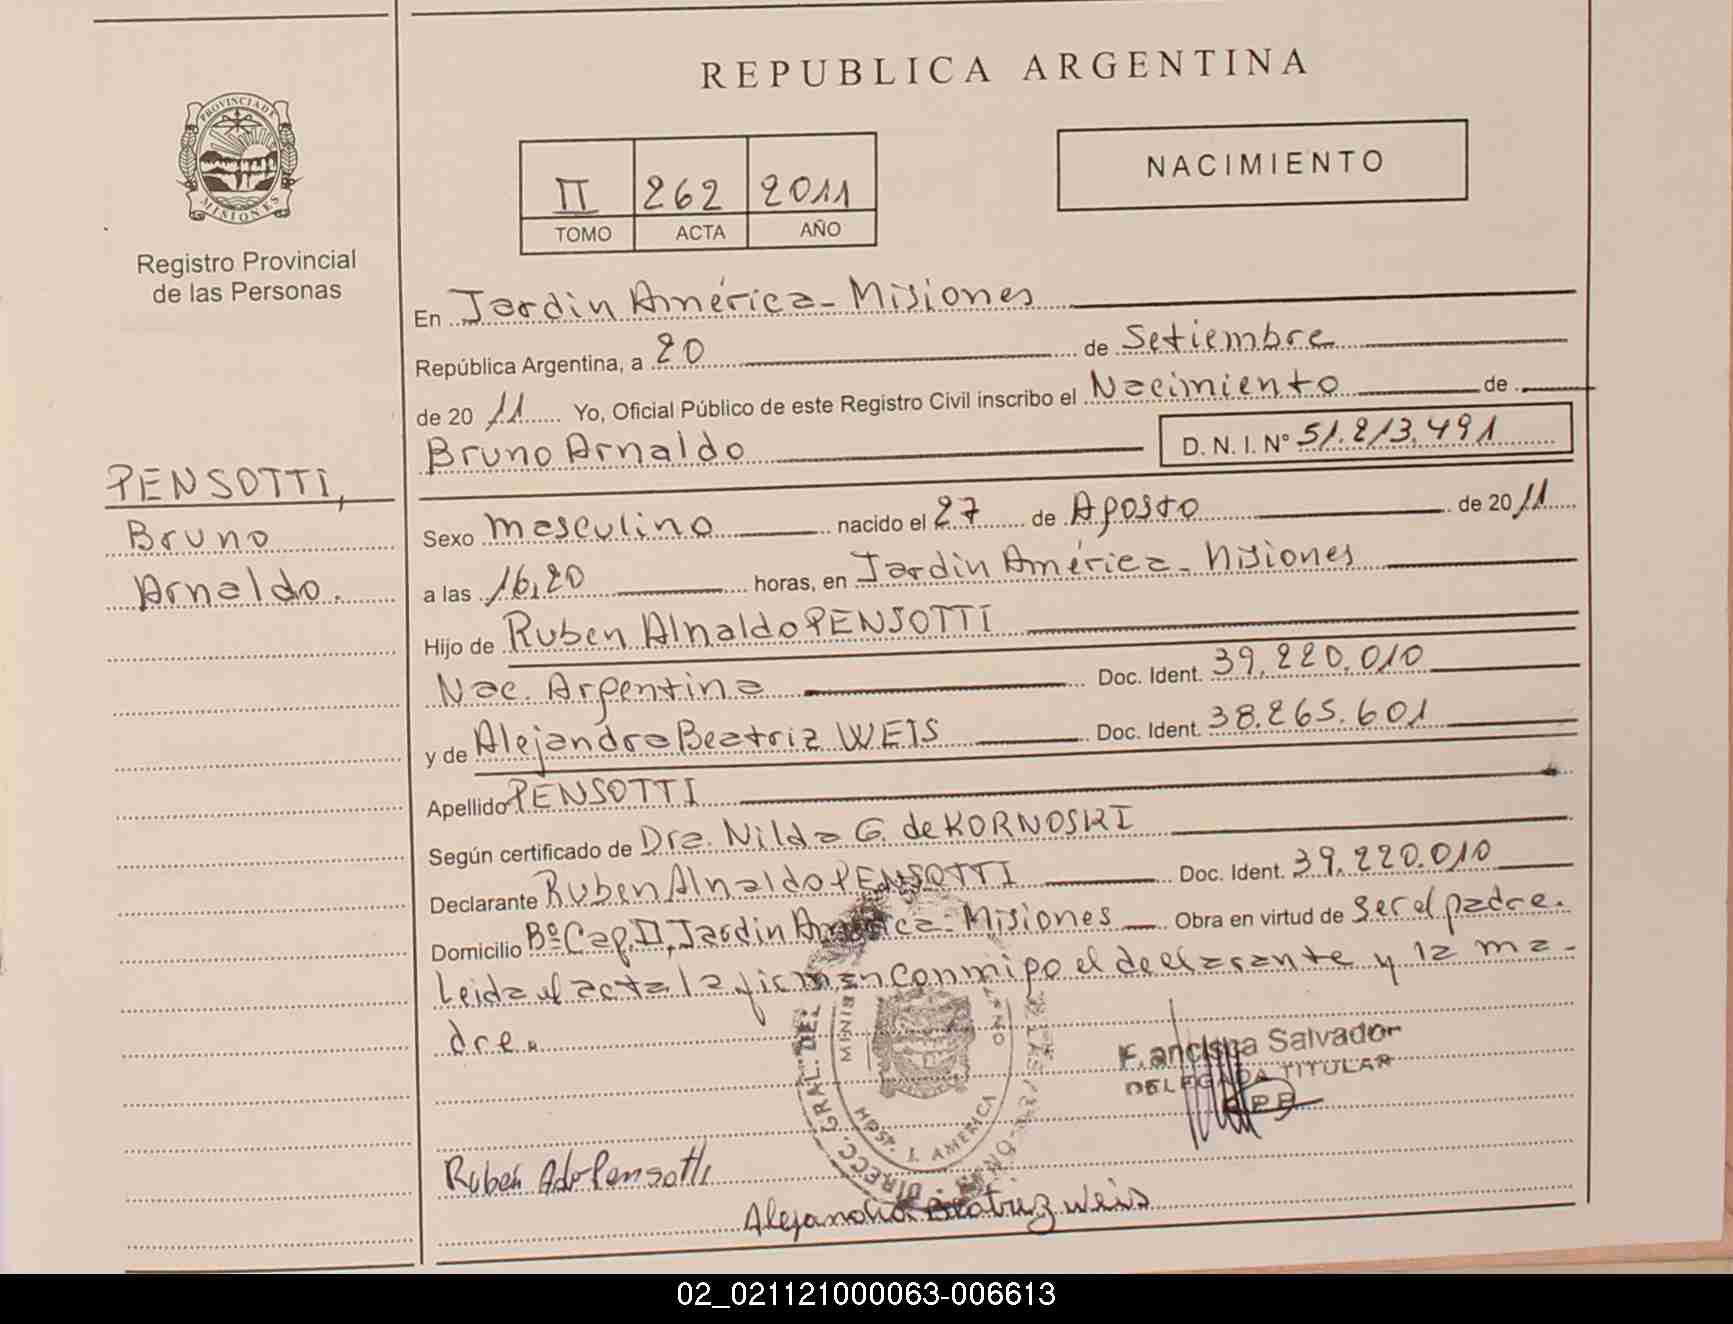 REPUBLICA ARGENTINA
PROVINCIA DE
MISIONES
Registro Provincial
de las Personas
II 262 2011
TOMO ACTA AÑO
NACIMIENTO
En Jardin América - Misiones
República Argentina, a 20 de Setiembre
de 2011 Yo, Oficial Público de este Registro Civil inscribo el Nacimiento de
Bruno Arnaldo D. N. I. N° 51.213.491
PENSOTTI,
Bruno
Arnaldo.
Sexo masculino nacido el 27 de Agosto de 2011
a las 16,20 horas, en Jardin América - Misiones
Hijo de Ruben Alnaldo PENSOTTI
Nac. Argentina Doc. Ident. 39.220.010
y de Alejandra Beatriz WEIS Doc. Ident. 38.265.601
Apellido PENSOTTI
Según certificado de Dra. Nilda G. de KORNOSKI
Declarante Ruben Alnaldo PENSOTTI Doc. Ident. 39.220.010
Domicilio Bº Cap. II, Jardin América - Misiones Obra en virtud de ser el padre.
Leida el acta, la firman conmigo el declarante y la ma-
dre.
DIRECC. GRAL. DEL
J. AMERICA
Francisca Salvador
DELEGADA TITULAR
Ruben Pensotti
Alejandra Beatriz Weis
02_021121000063-006613